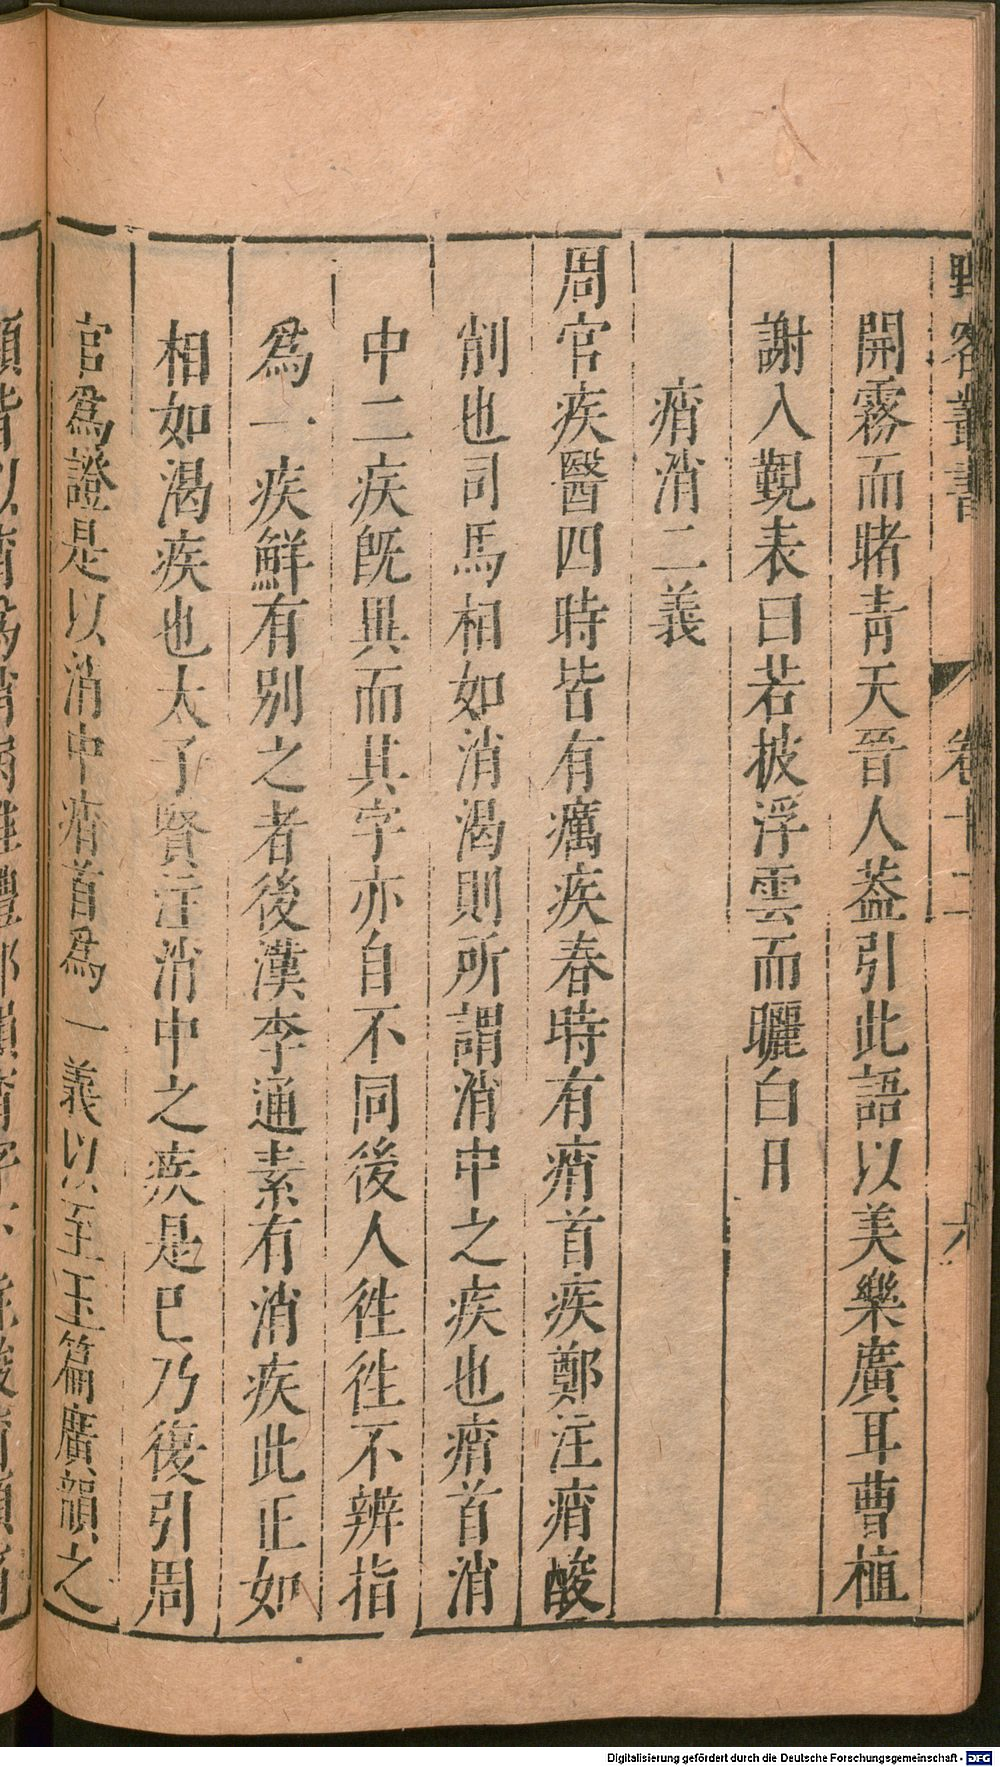 野客叢書 卷十二 六
開霧而睹青天晉人葢引此語以美樂廣耳曹植
謝入覲表曰若披浮雲而曬白日
痟消二義
周官疾醫四時皆有癘疾春時有痟首疾鄭注痟酸
削也司馬相如消渴則所謂消中之疾也痟首消
中二疾旣異而其字亦自不同後人徃徃不辨指
爲一疾鮮有别之者後漢李通素有消疾此正如
相如渴疾也太子賢注消中之疾是巳乃復引周
官爲證是以消中痟首爲一義以至玉篇廣韻之
Digitalisierung gefördert durch die Deutsche Forschungsgemeinschaft - DFG